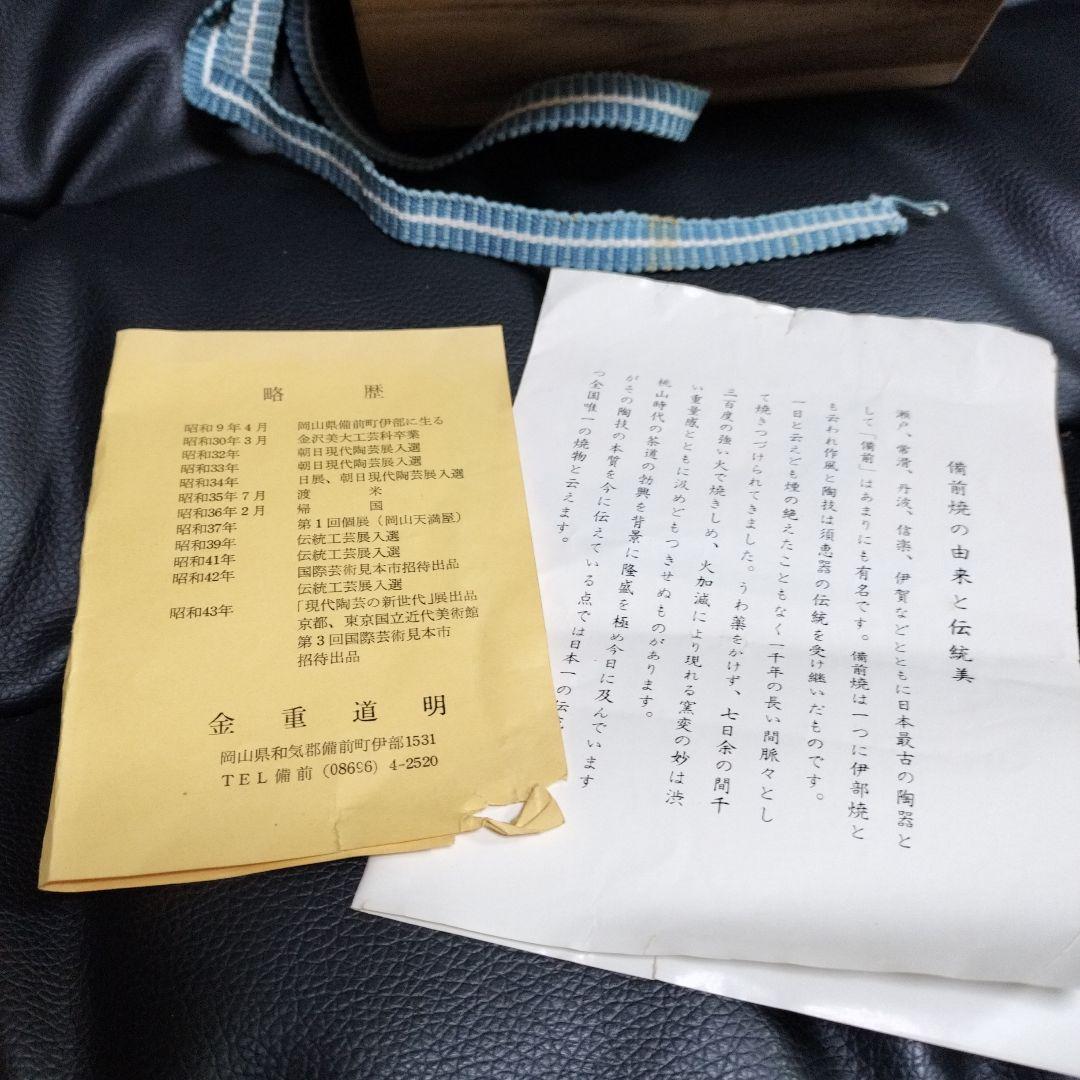 略 歴
昭和9年4月 岡山県備前町伊部に生る
昭和30年3月 金沢美大工芸科卒業
昭和32年 朝日現代陶芸展入選
昭和33年 朝日現代陶芸展入選
昭和34年 日展、朝日現代陶芸展入選
昭和35年7月 渡 米
昭和36年2月 帰 国
昭和37年 第1回個展(岡山天満屋)
昭和39年 伝統工芸展入選
昭和41年 伝統工芸展入選
昭和42年 国際芸術見本市招待出品
伝統工芸展入選
昭和43年 「現代陶芸の新世代」展出品
京都、東京国立近代美術館
第3回国際芸術見本市
招待出品
金重道明
岡山県和気郡備前町伊部1531
TEL備前(08696)4-2520
備前焼の由来と伝統美
瀬戸、常滑、丹波、信楽、伊賀などとともに日本最古の陶器と
して「備前」はあまりにも有名です。備前焼は一つに伊部焼と
も云われ作風と陶技は須恵器の伝統を受け継いだものです。
一日と云えども煙の絶えたこともなく一千年の長い間脈々とし
て焼きつづけられてきました。うわ薬をかけず、七日余の間千
三百度の強い火で焼きしめ、火加減により現れる窯変の妙は渋
い重量感とともに汲めどもつきせぬものがあります。
桃山時代の茶道の勃興を背景に隆盛を極め今日に及んでいます
がその陶技の本質を今に伝えている点では日本一の伝
つ全国唯一の焼物と云えます。